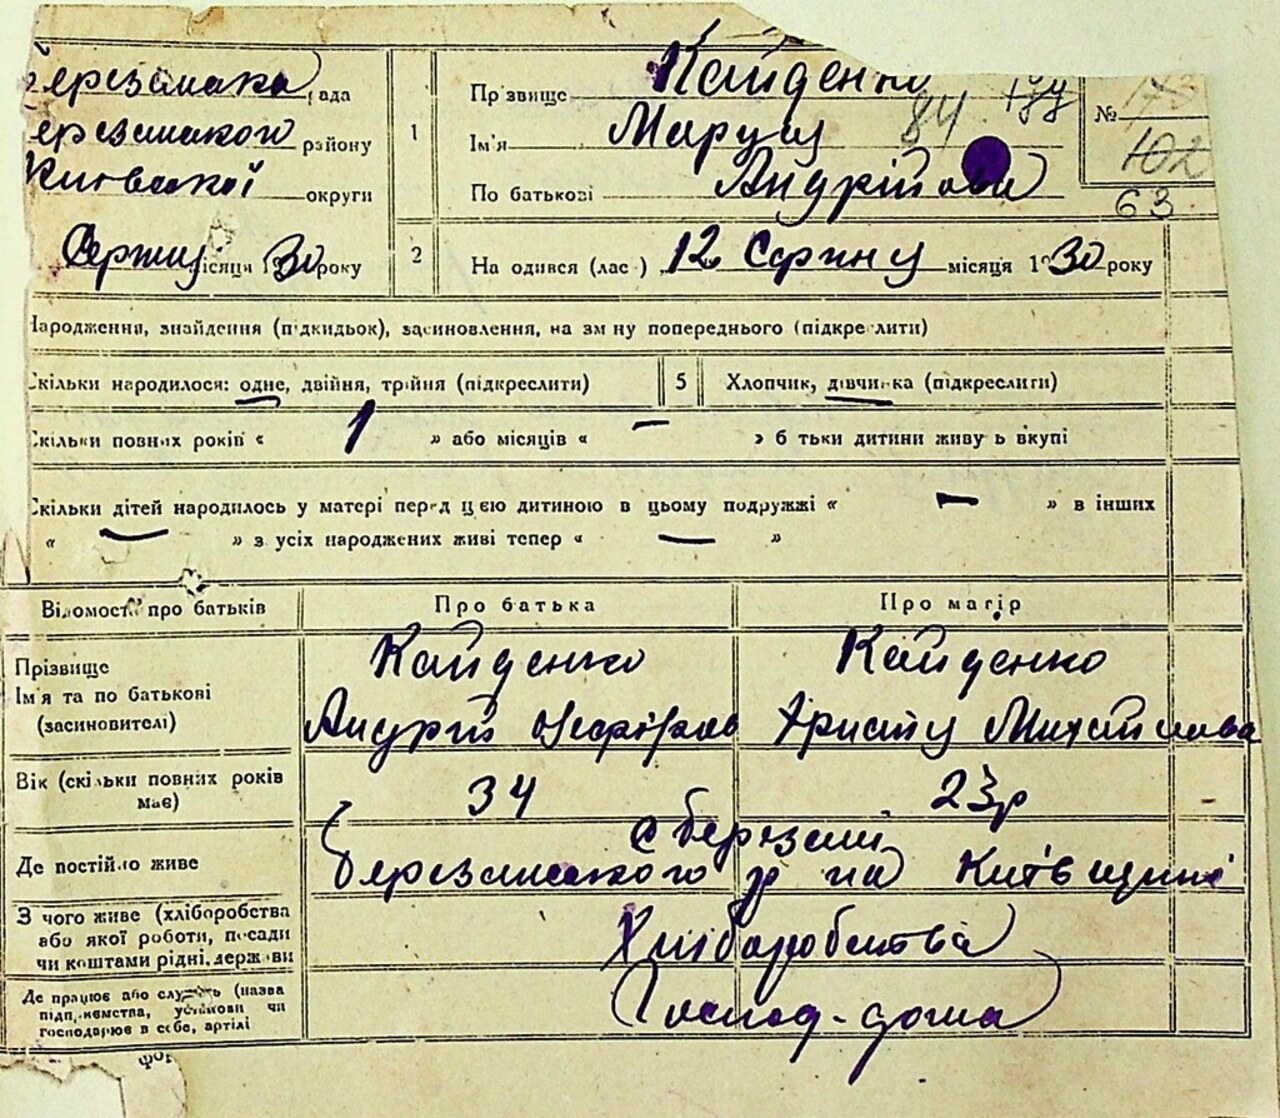 Березанська рада
Березанського району
Київської округи
Серпня місяця 1930 року
1
Прізвище Кайденко
Ім'я Маруся
По батькові Андрійова
84 177
№ 173
102
63
2
Народився (лас ) 12 Серпня місяця 1930 року
Народження, знайдення (підкидьок), засиновлення, на зміну попереднього (підкреслити)
Скільки народилося: одне, двійня, трійня (підкреслити)
5 Хлопчик, дівчинка (підкреслити)
Скільки повних років « 1 » або місяців « — » батьки дитини живуть вкупі
Скільки дітей народилось у матері перед цією дитиною в цьому подружжі « — » в інших
« — » з усіх народжених живі тепер « — »
Відомості про батьків
Про батька
Про матір
Прізвище
Ім'я та по батькові
(засиновителі)
Кайденко
Андрій
Кайденко
Христя Михайлова
Вік (скільки повних років
має)
34
23р
Де постійно живе
с Березані
Березанського р на Київщині
З чого живе (хліборобства
або якої роботи, посади
чи коштами рідні, держави
Хліборобства
Де працює або служить (назва
підприємства, установи чи
господарює в себе, артілі
Господ-дома
фор